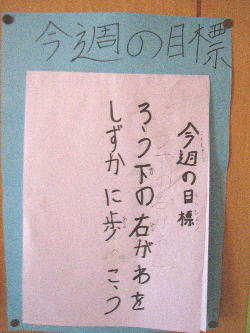 今週の目標
今週の目標
ろう下の右がわを
しずかに歩こう